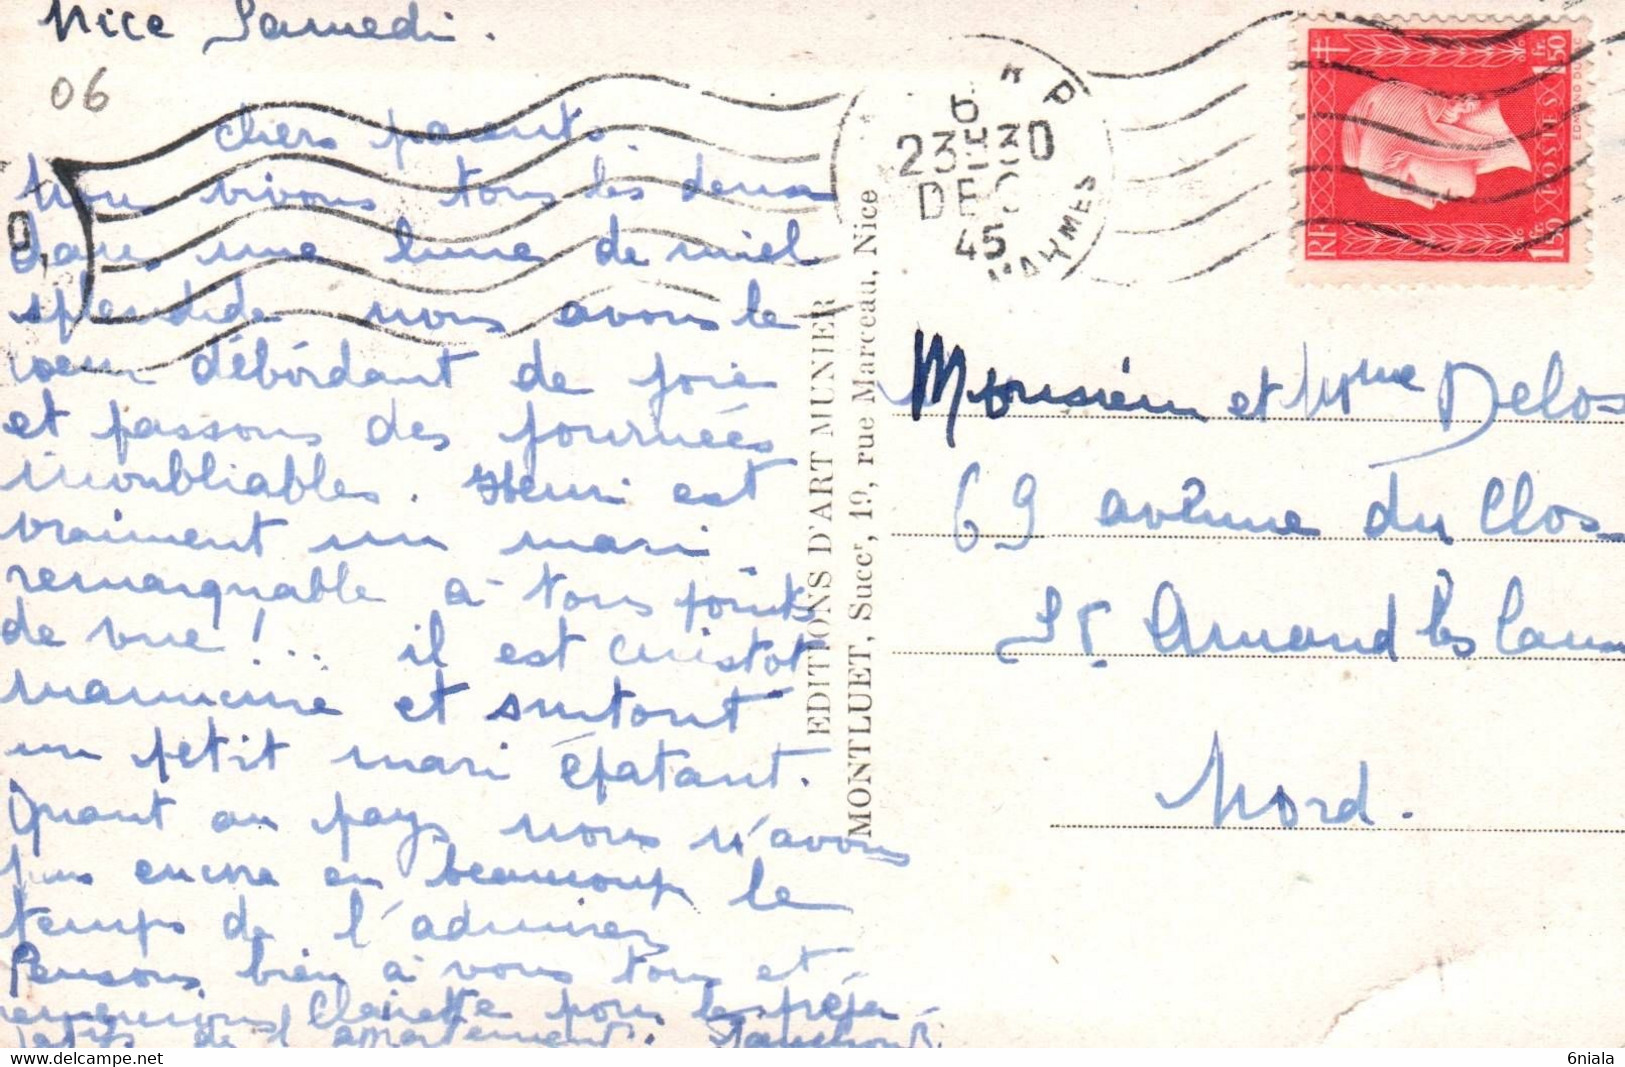 Nice Samedi.
06
chers parents.
Nous vivons tous les deux
dans une lune de miel
splendide nous avons le
coeur débordant de joie
et passons des journées
inoubliables. Henri est
vraiment un mari
remarquable à tous points
de vue!... il est cuistot
et surtout
un petit mari épatant.
Quant au pays nous n'avons
pas encore eu beaucoup le
temps de l'admirer
Pensons bien à vous tous et
remercions Clairette pour les prépa-
de l'appartement.
EDITIONS D'ART MUNIER
MONTLUET, Succr, 19, rue Marceau, Nice
6
23H30
DEC
45
RF
POSTES 1fr.50
1fr.50
Monsieur et Mme Delos
69 avenue du Clos
St Amand les Eaux
Nord.
6niala